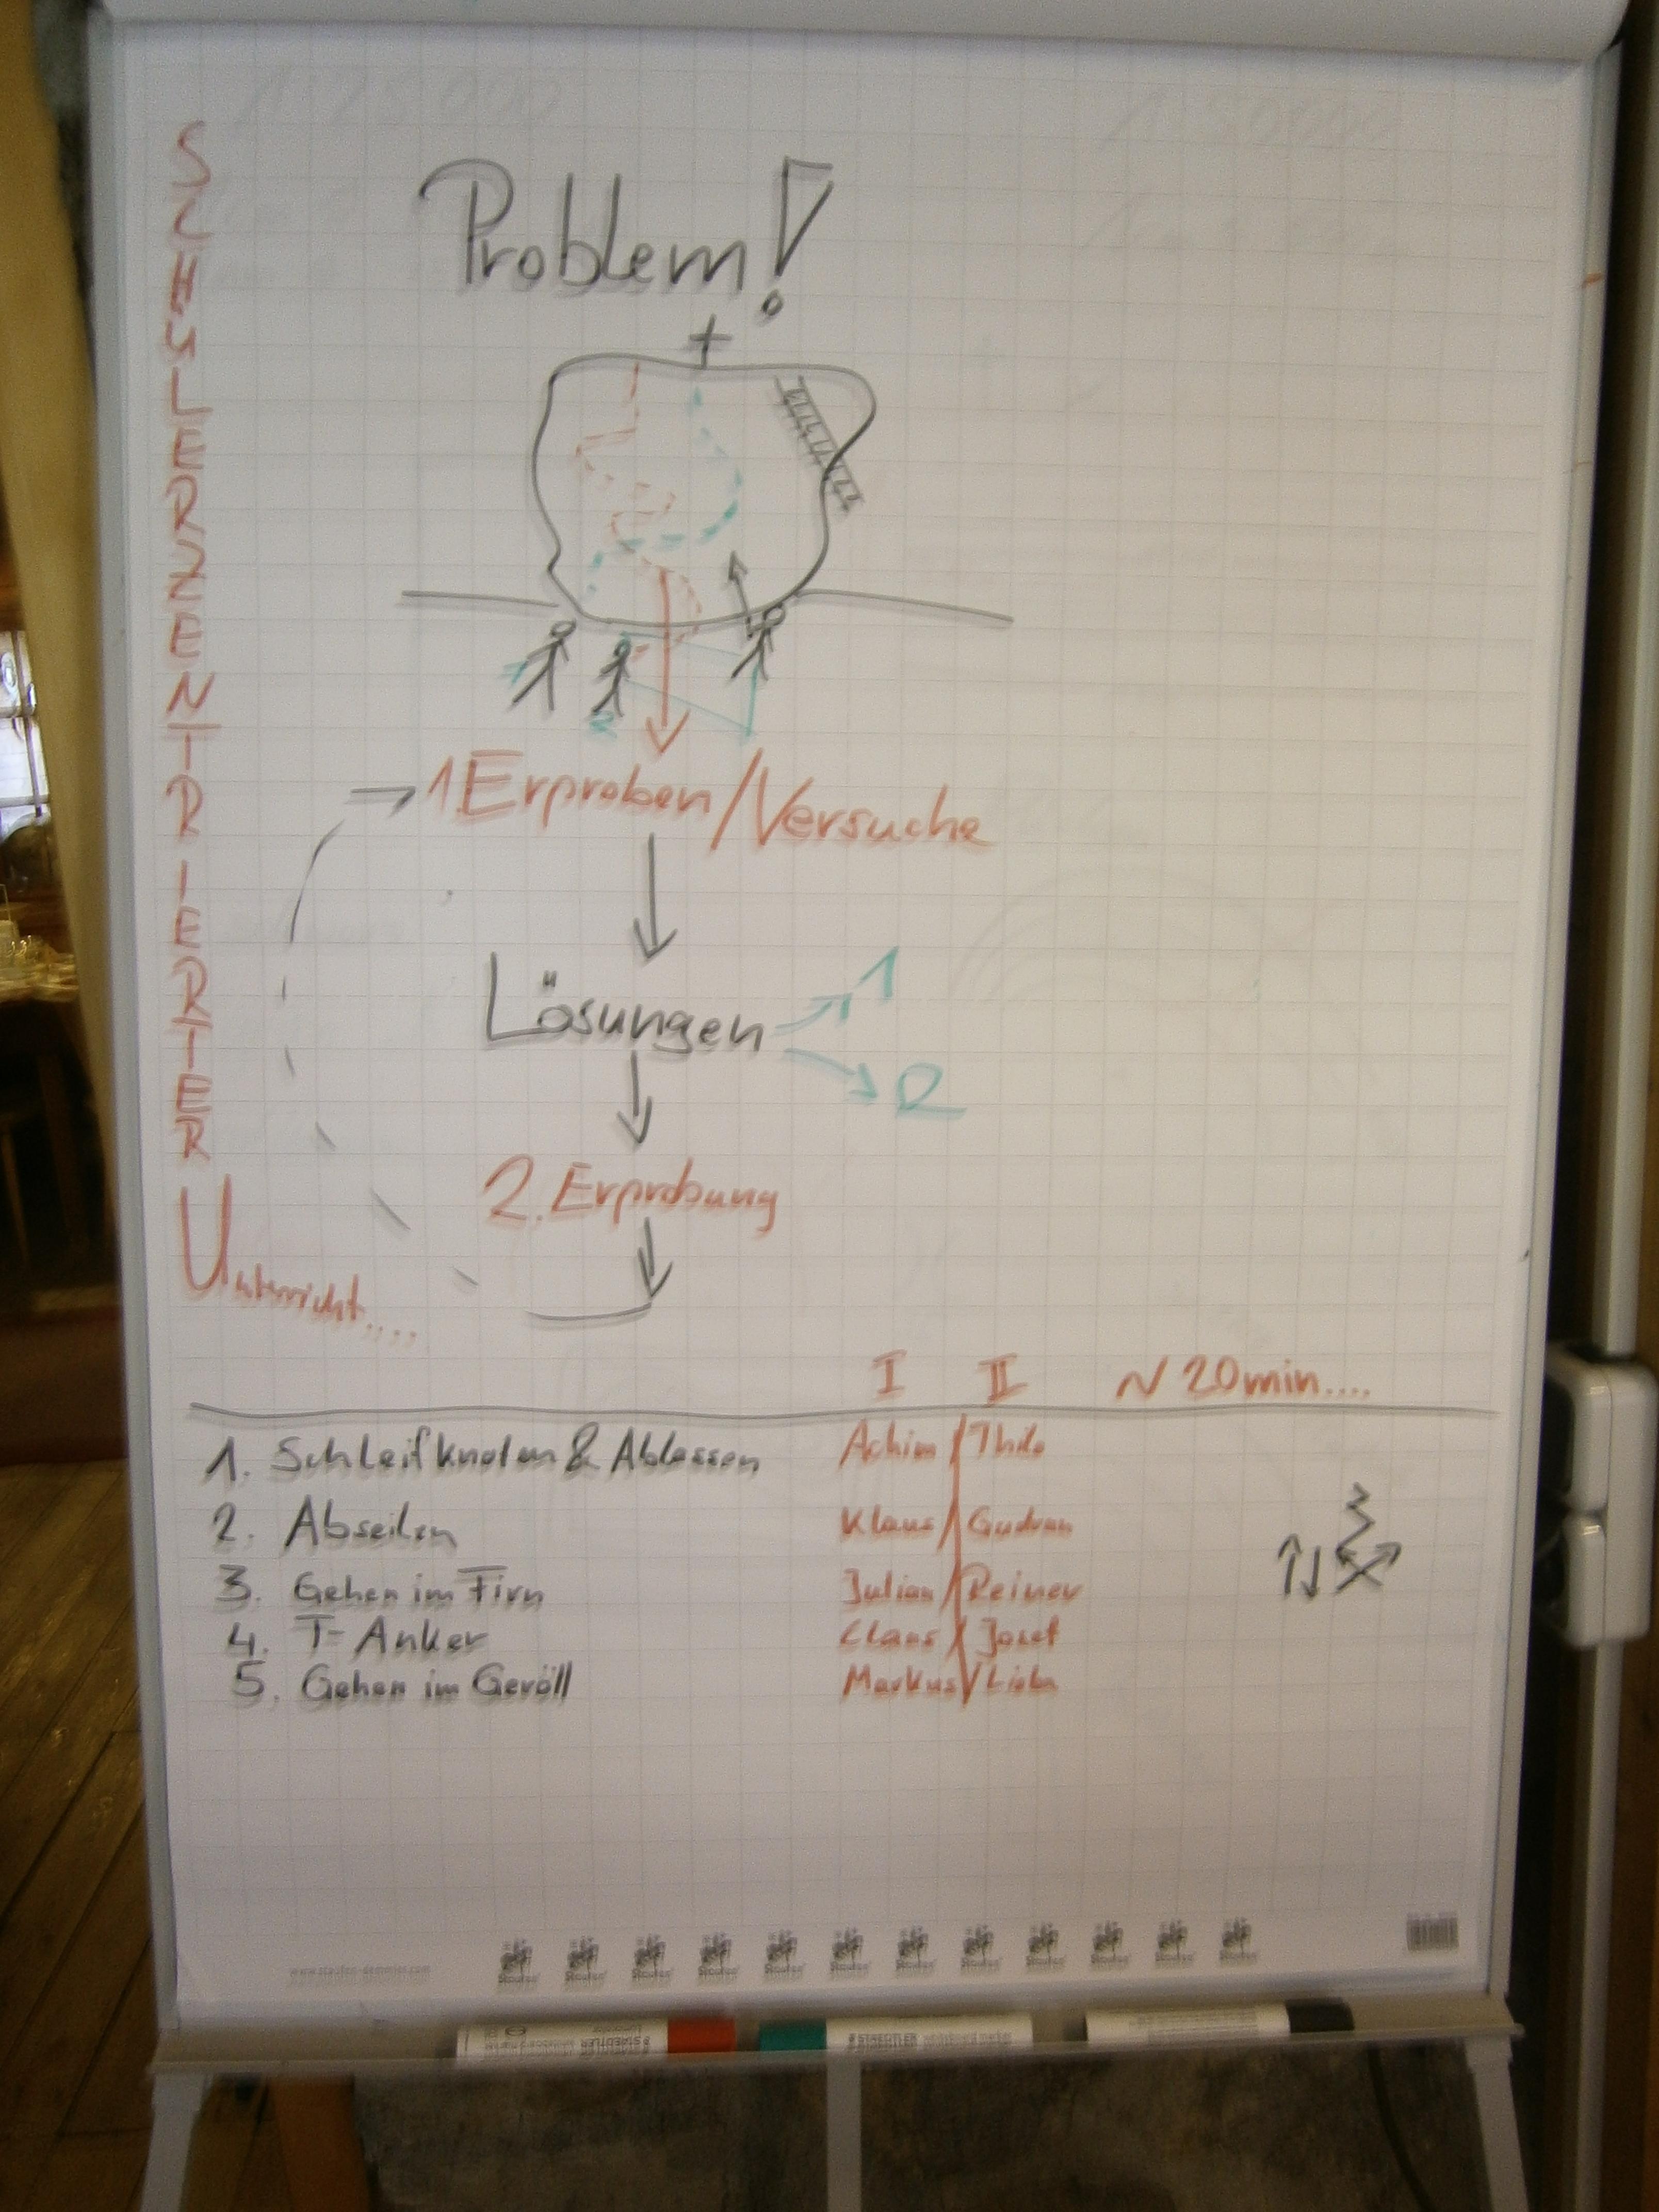 SCHÜLERZENTRIERTER
Unterricht....
Problem!
1. Erproben/Versuche
Lösungen
1
2
2. Erprobung
I II ~ 20min....
1. Schleifknoten & Ablassen Achim / Thilo
2. Abseilen Klaus / Gudrun
3. Gehen im Firn Julian / Reiner
4. T-Anker Claus / Josef
5. Gehen im Geröll Markus /
www.staufen-demmler.com
STAEDTLER
STAEDTLER